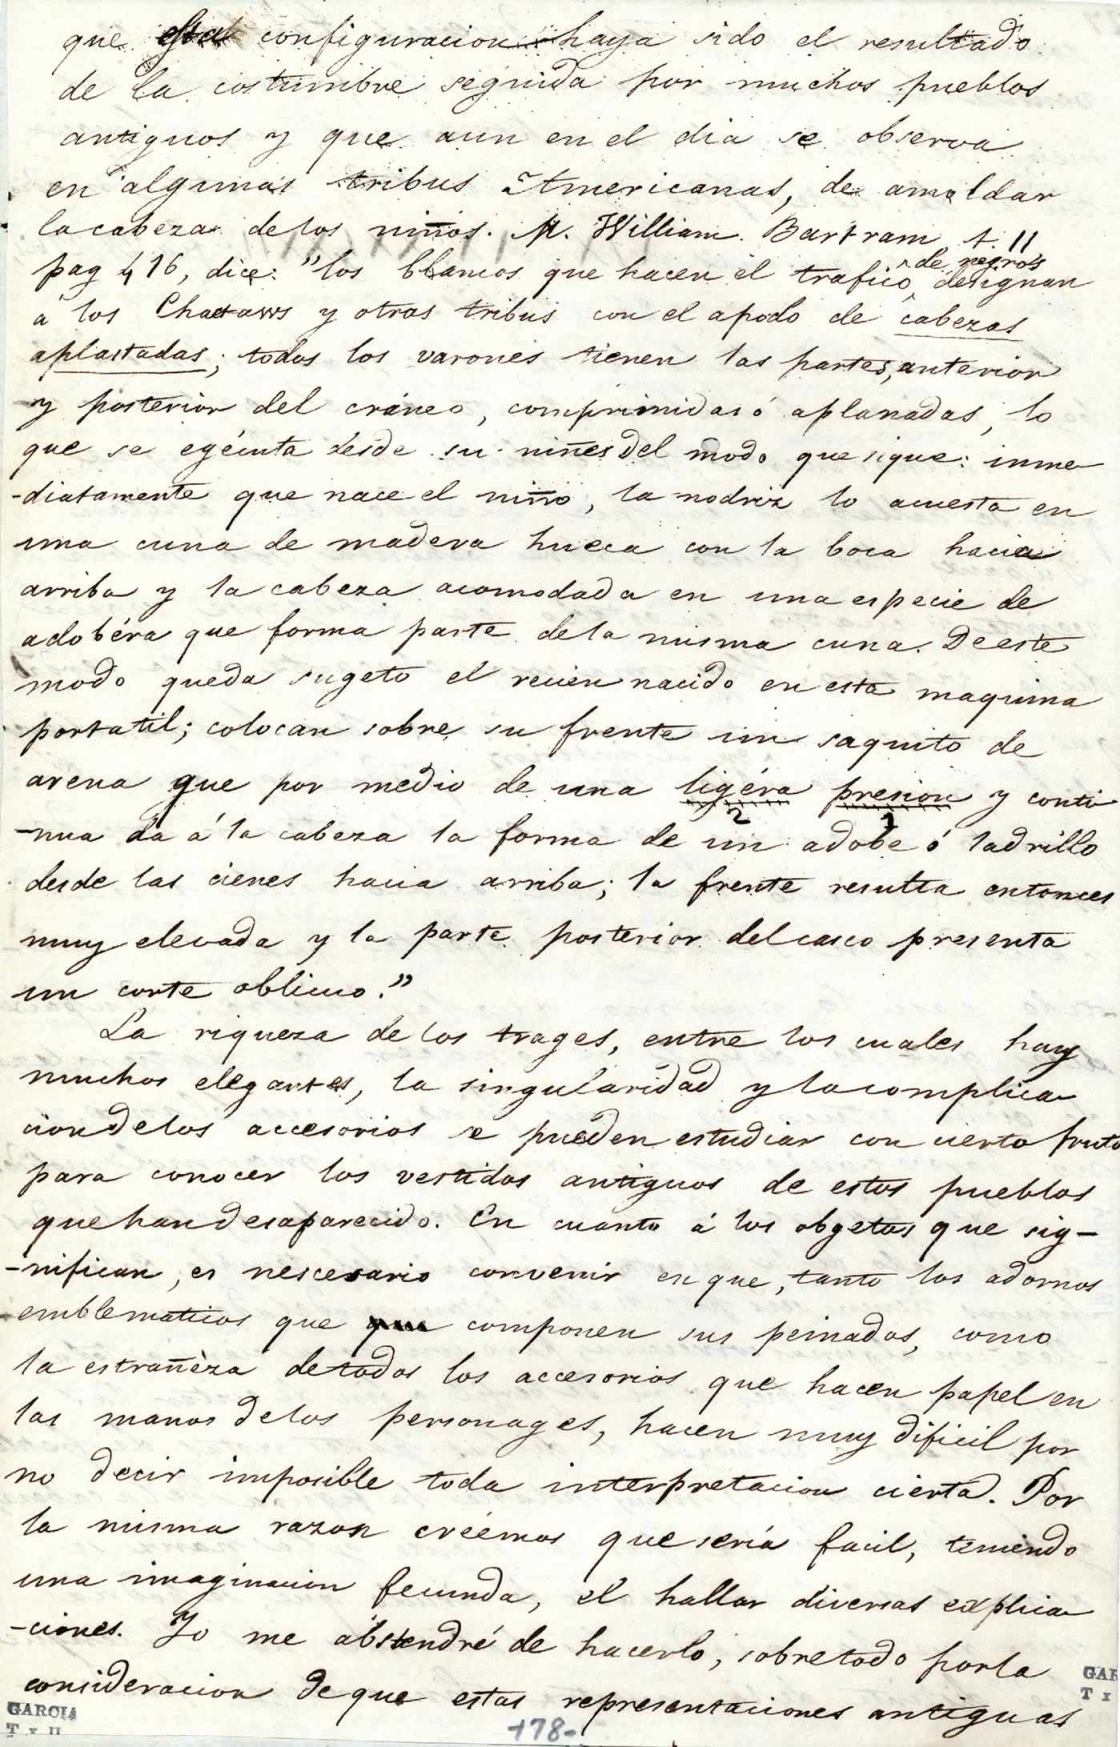 que esta configuracion haya sido el resultado
de la costumbre seguida por muchos pueblos
antiguos y que aun en el dia se observa
en algunas tribus Americanas, de amoldar
la cabeza de los niños. M. William Bartram, t. 11
pag 416, dice: "los blancos que hacen el trafico de negros designan
á los Chactaws y otras tribus con el apodo de cabezas
aplastadas; todos los varones tienen las partes, anterior
y posterior del cráneo, comprimidas ó aplanadas, lo
que se egécuta desde su niñes del modo que sigue: inme
-diatamente que nace el niño, la nodriz lo acuesta en
una cuna de madera hueca con la boca hacia
arriba y la cabeza acomodada en una especie de
adobéra que forma parte de la misma cuna. De este
modo queda sugeto el recien nacido en esta maquina
portatil; colocan sobre su frente un saquito de
arena que por medio de una ligéra presion y conti
2 1
-nua da á la cabeza la forma de un adobe ó ladrillo
desde las cienes hacia arriba; la frente resulta entonces
muy elevada y la parte posterior del casco presenta
un corte oblicuo."
La riqueza de los trages, entre los cuales hay
muchos elegantes, la singularidad y la complica
cion de los accesorios se pueden estudiar con cierto fruto
para conocer los vestidos antiguos de estos pueblos
que han desaparecido. En cuanto á los obgetos que sig-
-nifican, es nescesario convenir en que, tanto los adornos
emblematicos que componen sus peinados, como
la estrañéza de todos los accesorios que hacen papel en
las manos de los personages, hacen muy dificil por
no decir imposible toda interpretacion cierta. Por
la misma razon créemos que seria facil, teniendo
una imaginacion fecunda, el hallar diversas explica
-ciones. Yo me abstendré de hacerlo, sobre todo por la
consideracion de que estas representaciones antiguas
GARCIA
T x II
-178-
GAR
T x